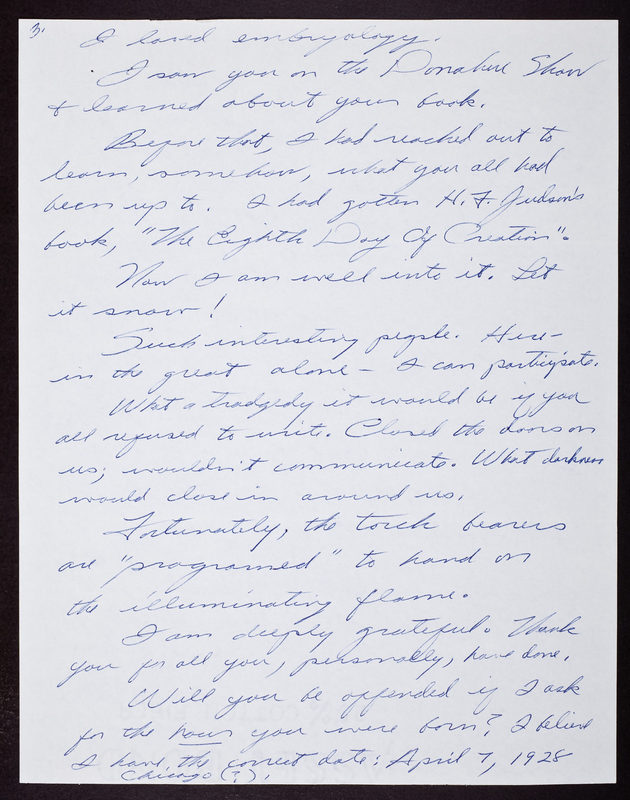 3.
I loved embryology.
I saw you on the Donahue Show
& learned about your book.
Before that, I had reached out to
learn, somehow, what you all had
been up to. I had gotten H. F. Judson's
book, "The Eighth Day Of Creation".
Now I am well into it. Let
it snow!
Such interesting people. Here—
in the great alone — I can participate.
What a tradgedy it would be if you
all refused to write. Closed the doors on
us; wouldn't communicate. What darkness
would close in around us.
Fortunately, the torch bearers
are "programed" to hand on
the illuminating flame.
I am deeply grateful. Thank
you for all you, personally, have done.
Will you be offended if I ask
for the hour you were born? I believe
I have the correct date: April 7, 1928
Chicago (?).